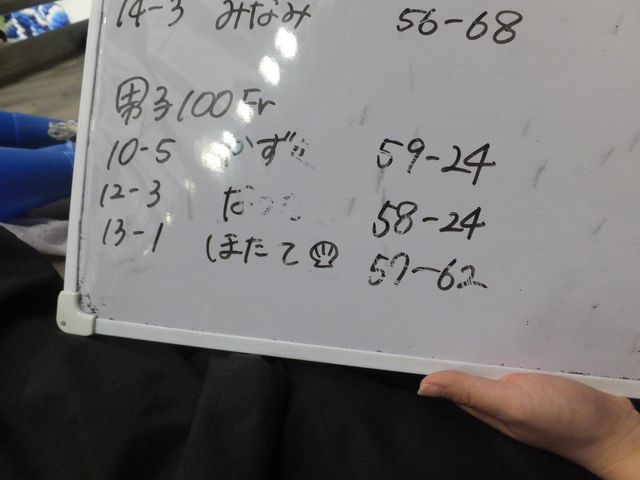 14-3 みなみ 56-68
男子100Fr
10-5 59-24
12-3 58-24
13-1 ほたて 57-62